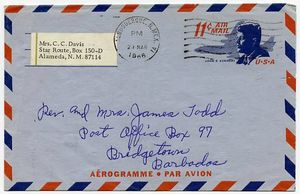 ALBUQUERQUE, N.MEX.
PM
Mrs. C. C. Davis
Star Route, Box 150-D
Alameda, N. M. 87114
11¢ AIR MAIL
JOHN F. KENNEDY
U•S•A
Rev. and Mrs. James Todd
Post Office Box 97
Bridgetown
Barbados
AÉROGRAMME • PAR AVION